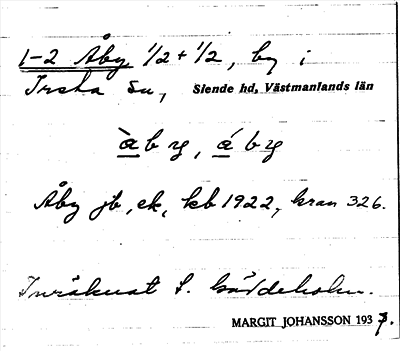 1-2 Åby, 1/2 + 1/2, by i
Irsta sn, Siende hd, Västmanlands län
àby, áby
Åby jb, ek, kb 1922, kran 326.
Inräknat t. Gäddeholm.
MARGIT JOHANSSON 1937.